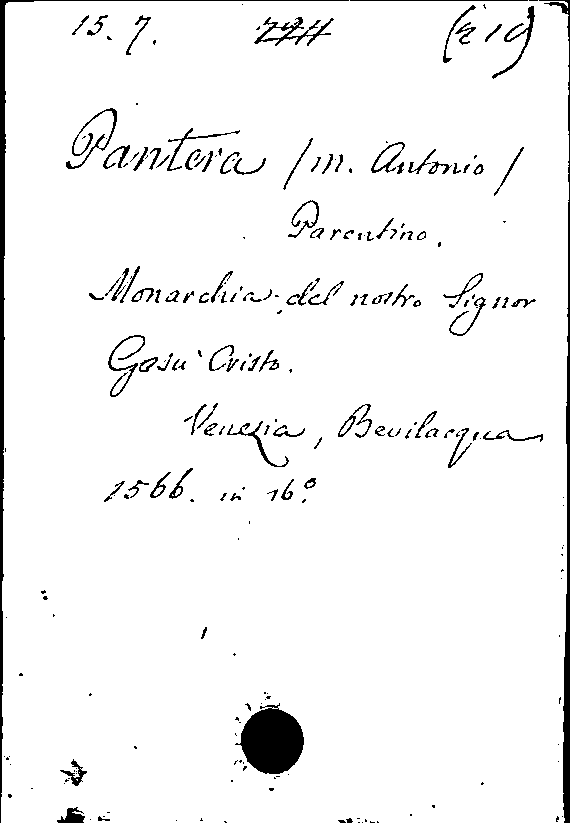 15. 7.
Pantera /m. Antonio/
Parentino.
Monarchia del nostro Signor
Gesu' Cristo.
Venezia, Bevilacqua
1566. in 16.º